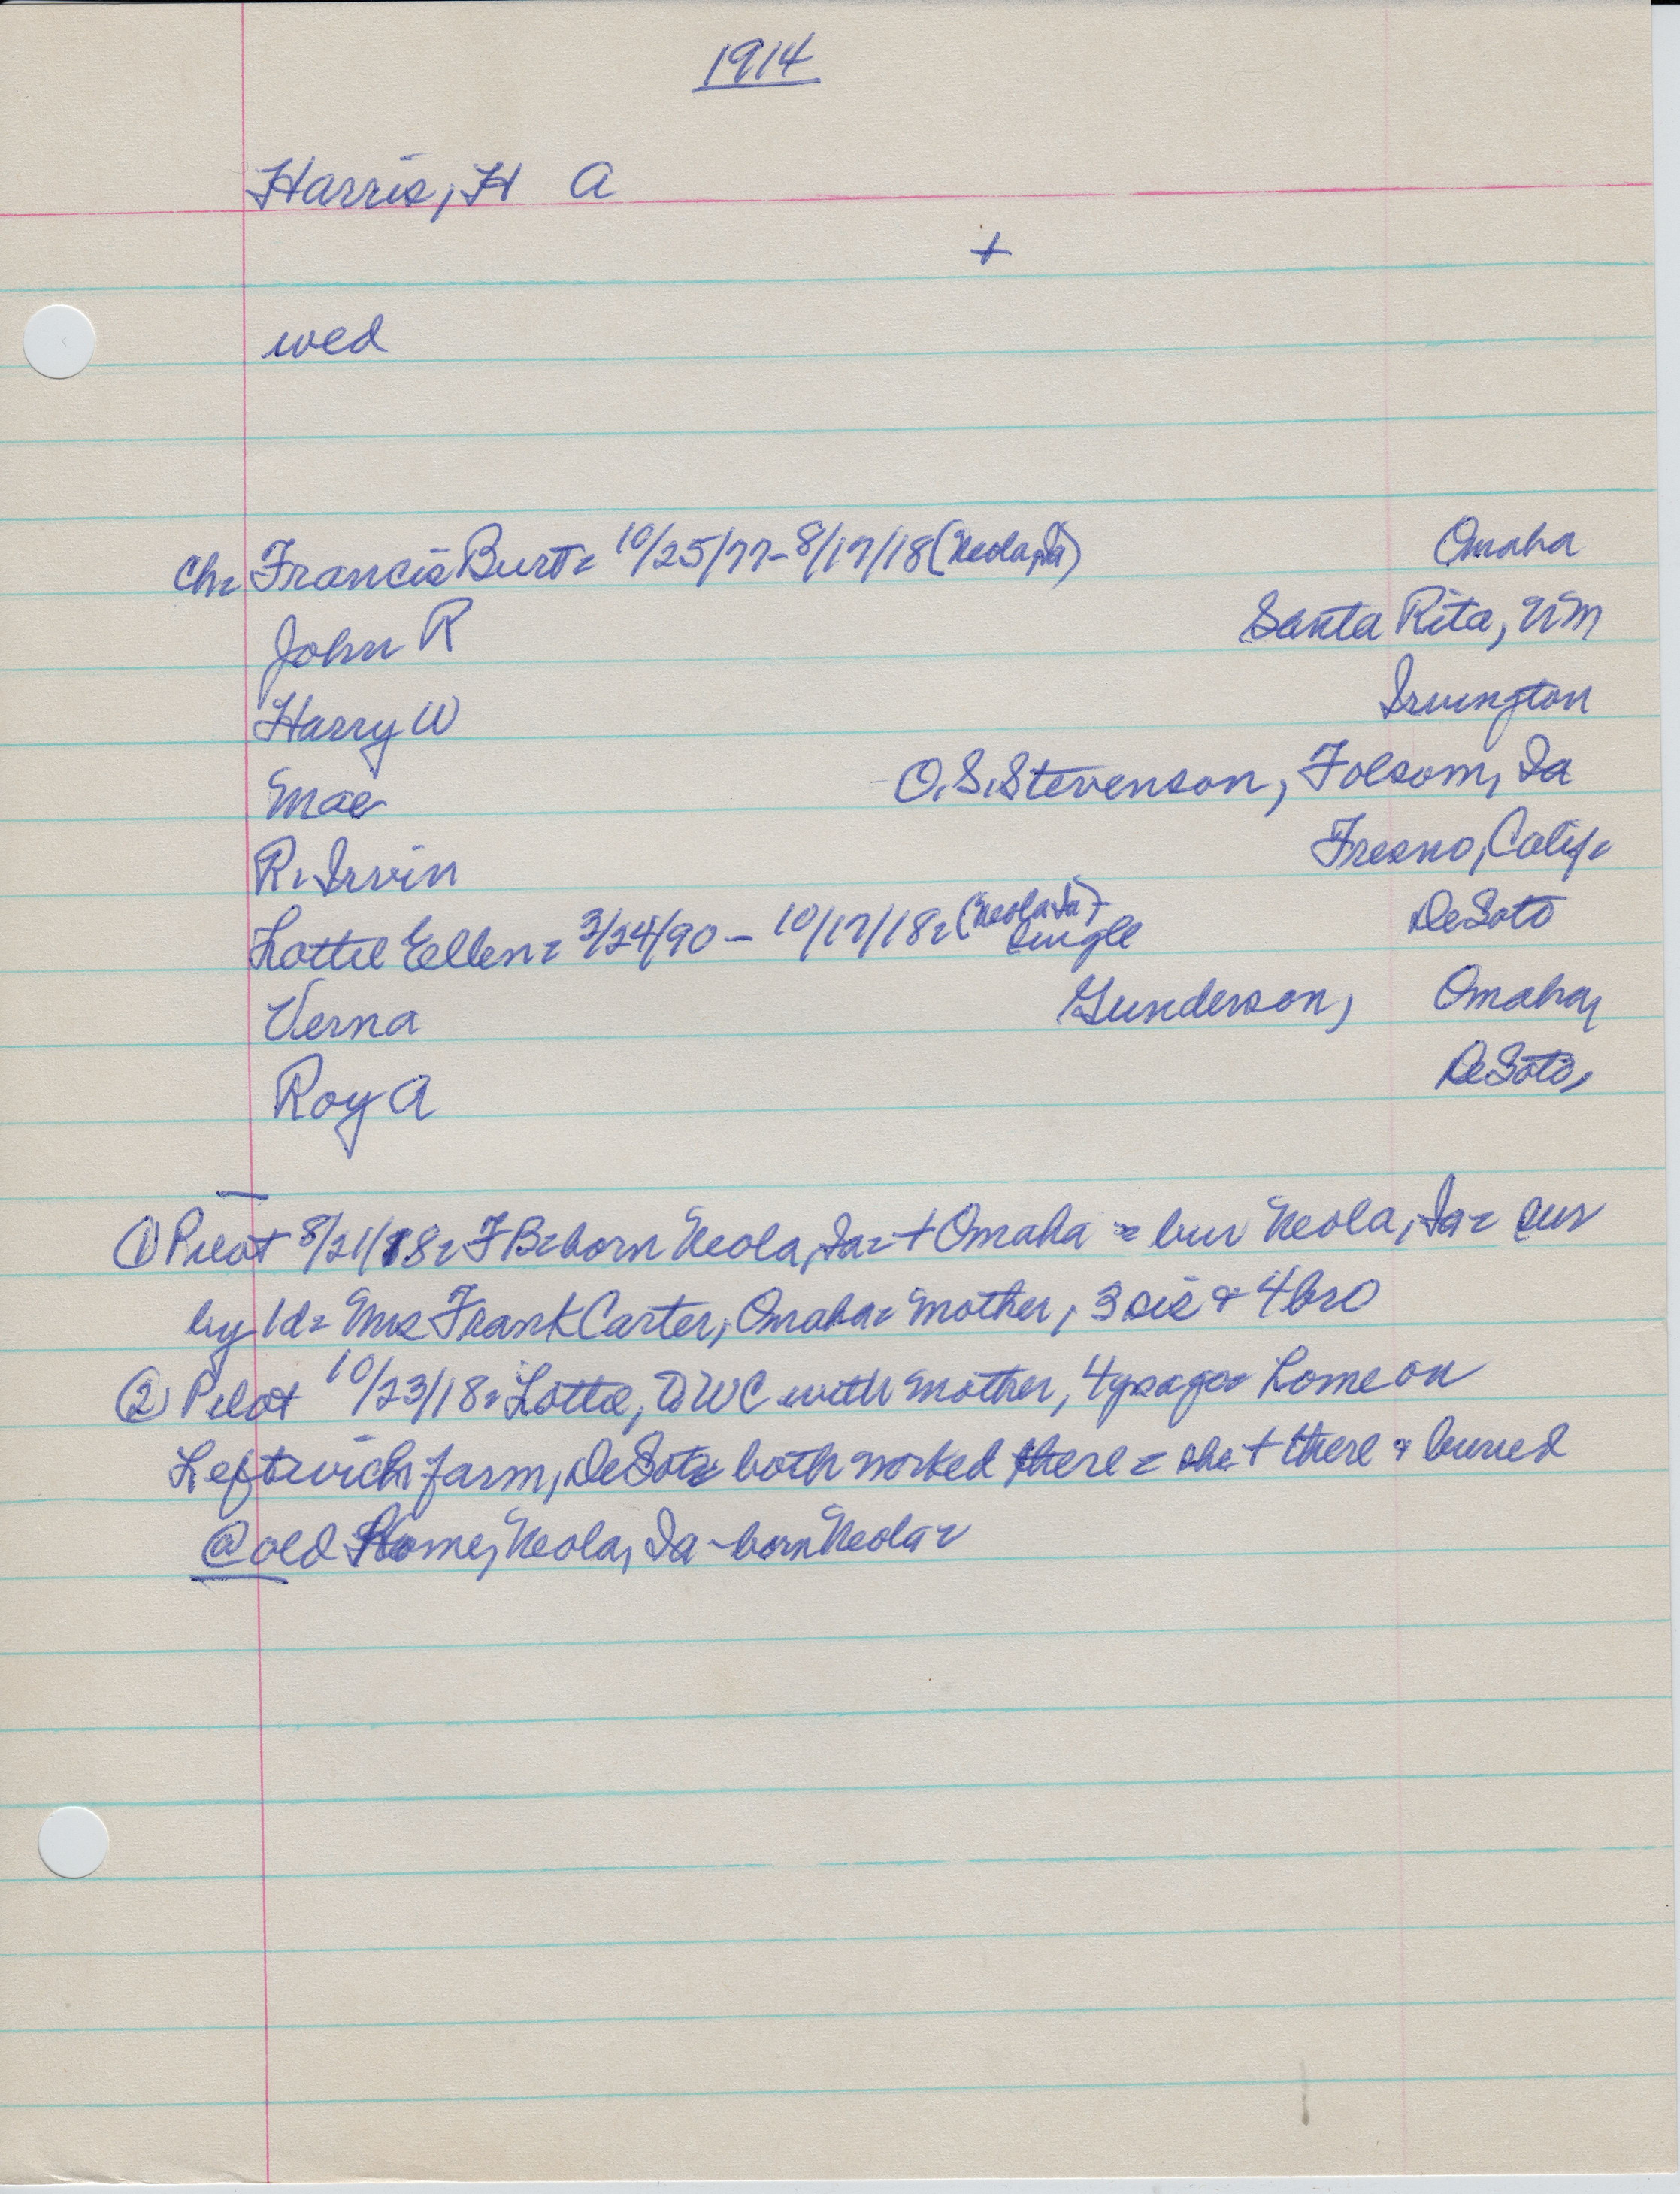 1914
Harris, H A
+
wed
Ch= Francis Burt= 10/25/77-8/17/18 (Neola, Ia) Omaha
John R Santa Rita, NM
Harry W Irvington
Mae O.S. Stevenson, Folsom, Ia
R. Irvin Fresno, Calif=
Lottie Ellen= 3/24/90 - 10/17/18= (Neola Ia)- single DeSoto
Verna Gunderson, Omaha,
Roy A DeSoto,
① Pilot 8/21/18= F B= born Neola, Ia= + Omaha = bur Neola, Ia= sur
by 1d= Mrs Frank Carter, Omaha= mother, 3 sis & 4 bro
② Pilot 10/23/18= Lotte, to WC with mother, 4 yrs ago= home on
Leftwich farm, DeSoto= both worked there = she + there & buried
@ old home, Neola, Ia - born Neola=